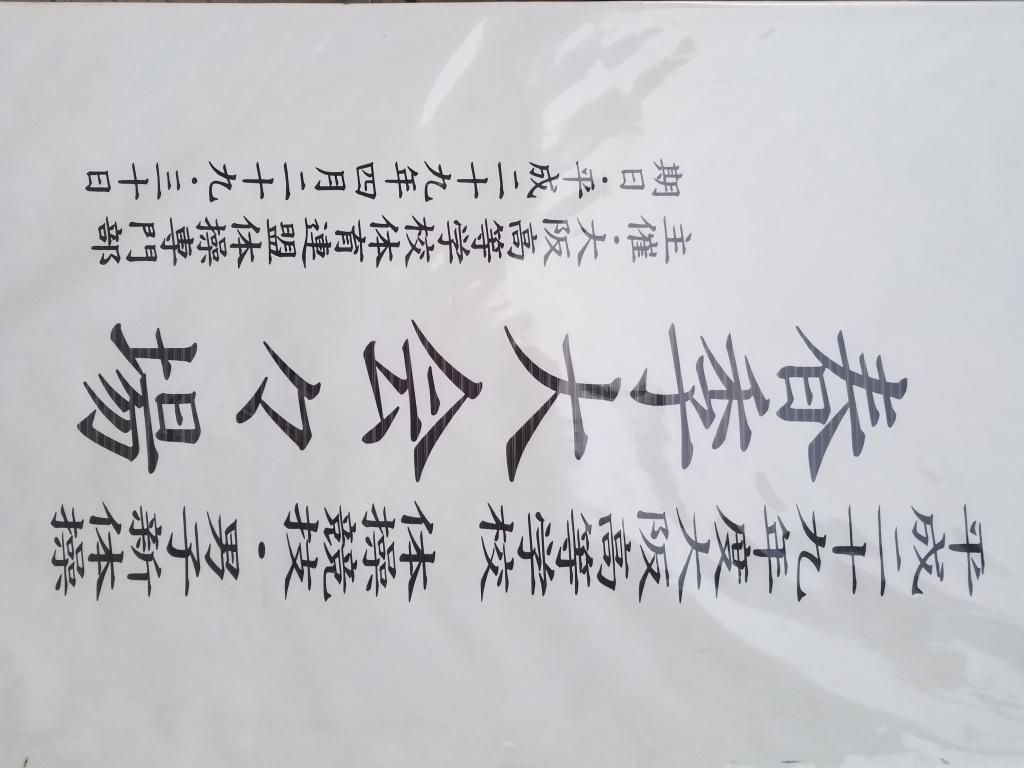 平成二十九年度大阪高等学校 体操競技・男子新体操
春季大会々場
主催・大阪高等学校体育連盟体操専門部
期日・平成二十九年四月二十九・三十日